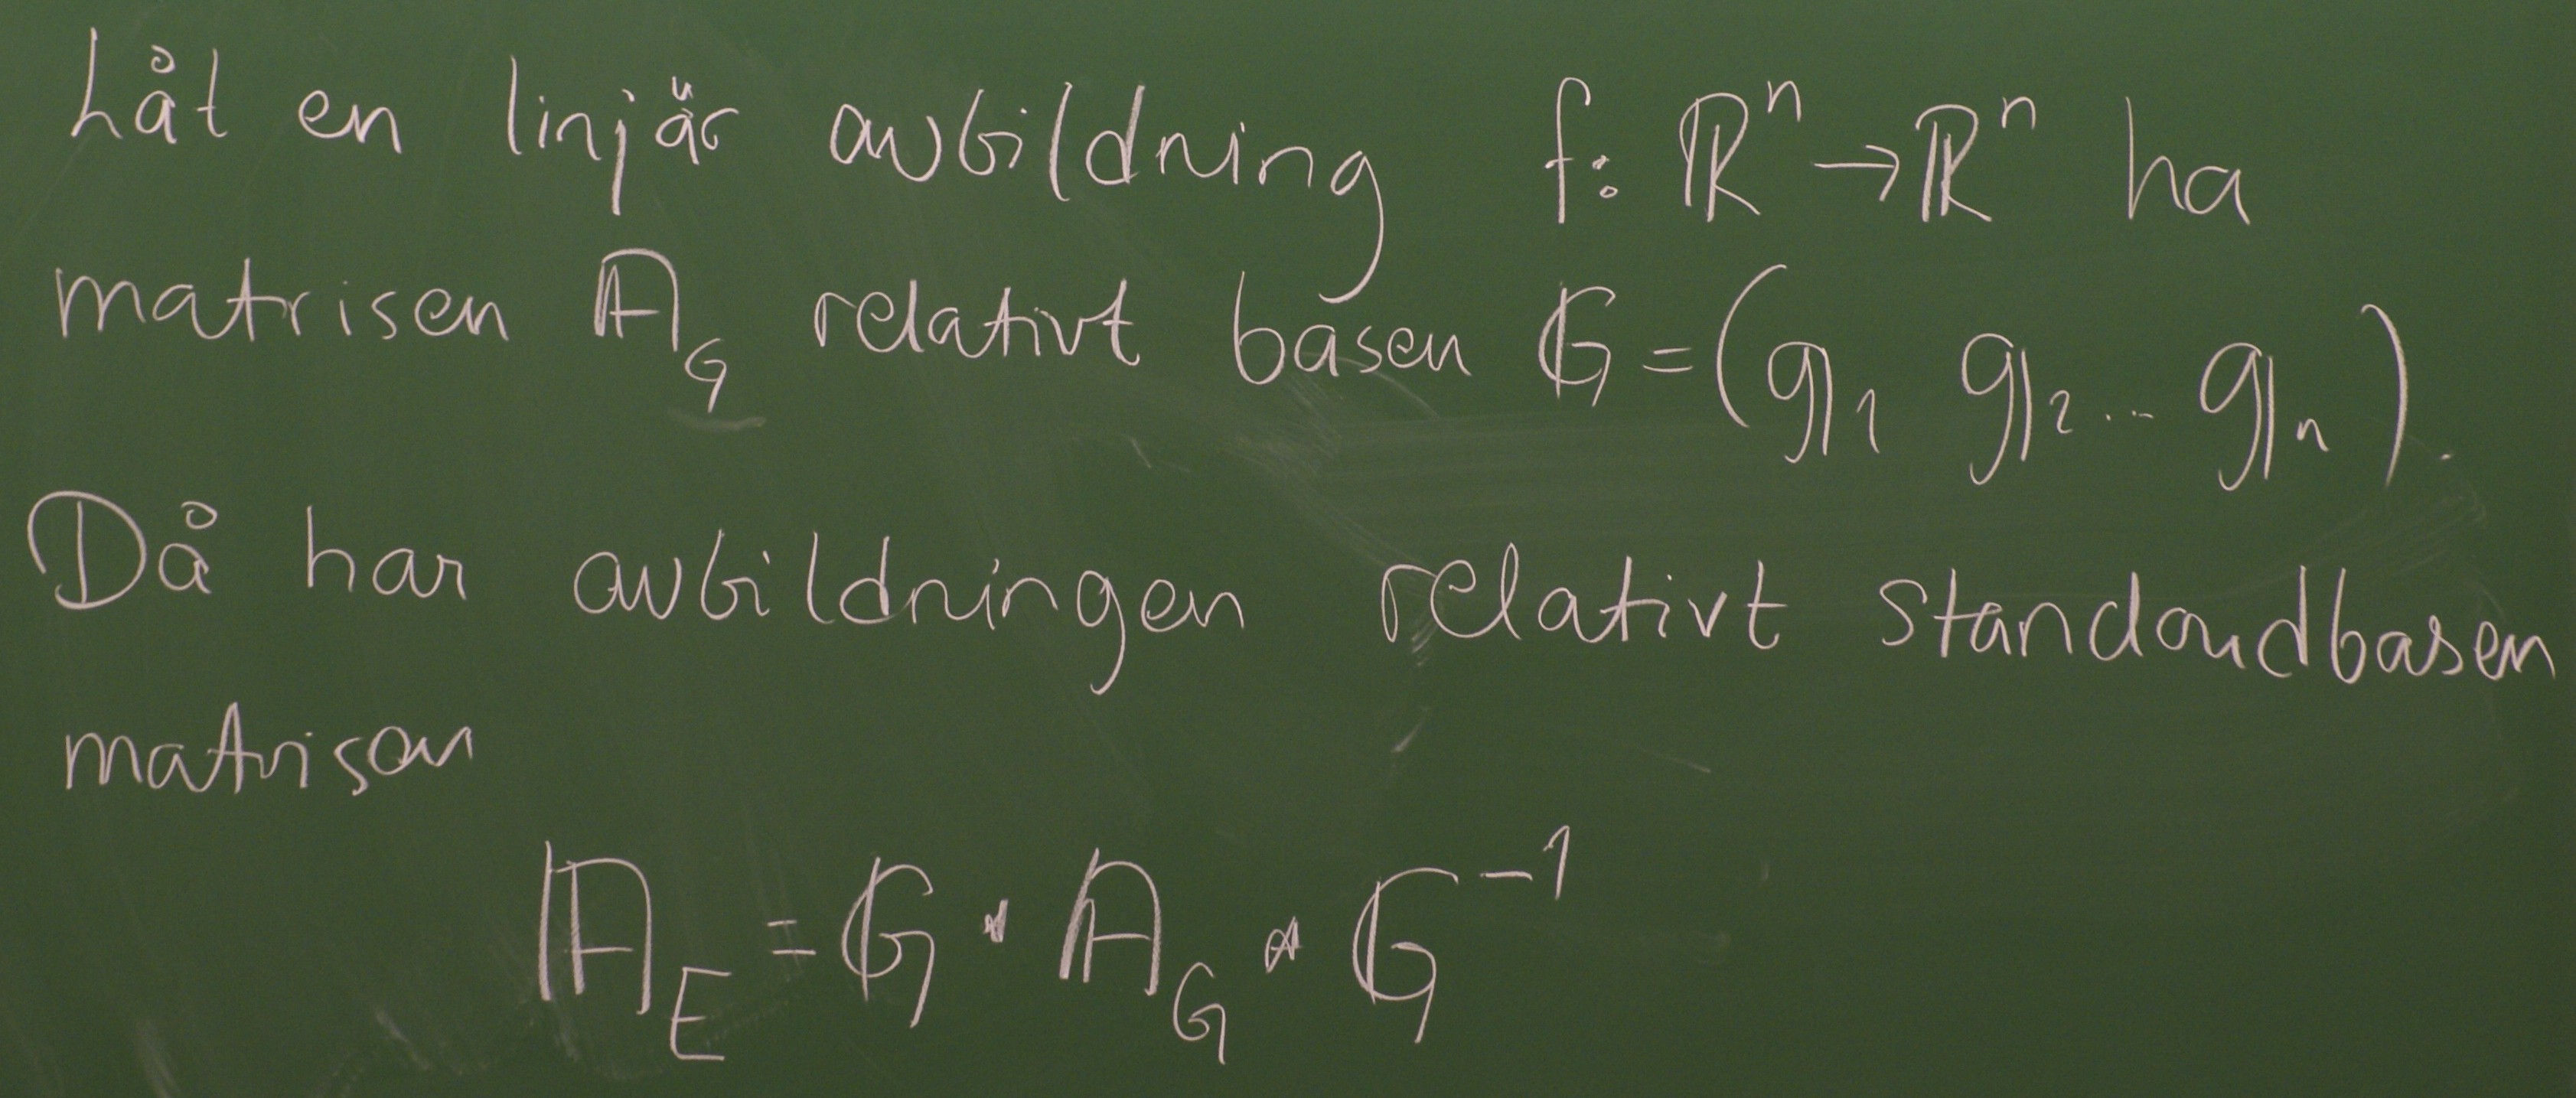 Låt en linjär avbildning f: ℝⁿ → ℝⁿ ha
matrisen 𝔸_G relativt basen 𝔾 = (g₁ g₂ ... gₙ).
Då har avbildningen relativt standardbasen
matrisen
𝔸_E = 𝔾 · 𝔸_G · 𝔾⁻¹